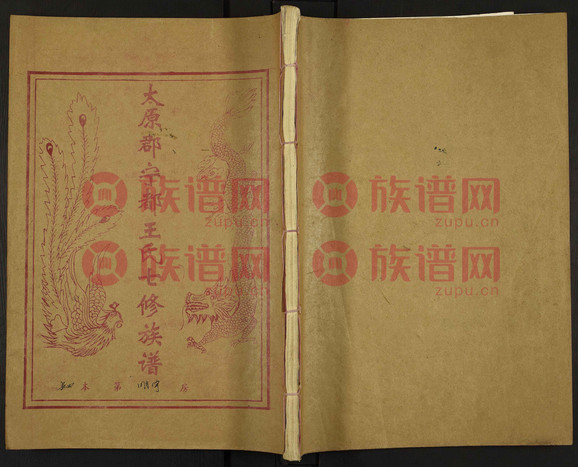 太原郡宁都王氏七修族谱
本 第 房
族谱网
zupu.cn
族谱网
zupu.cn
族谱网
zupu.cn
族谱网
zupu.cn